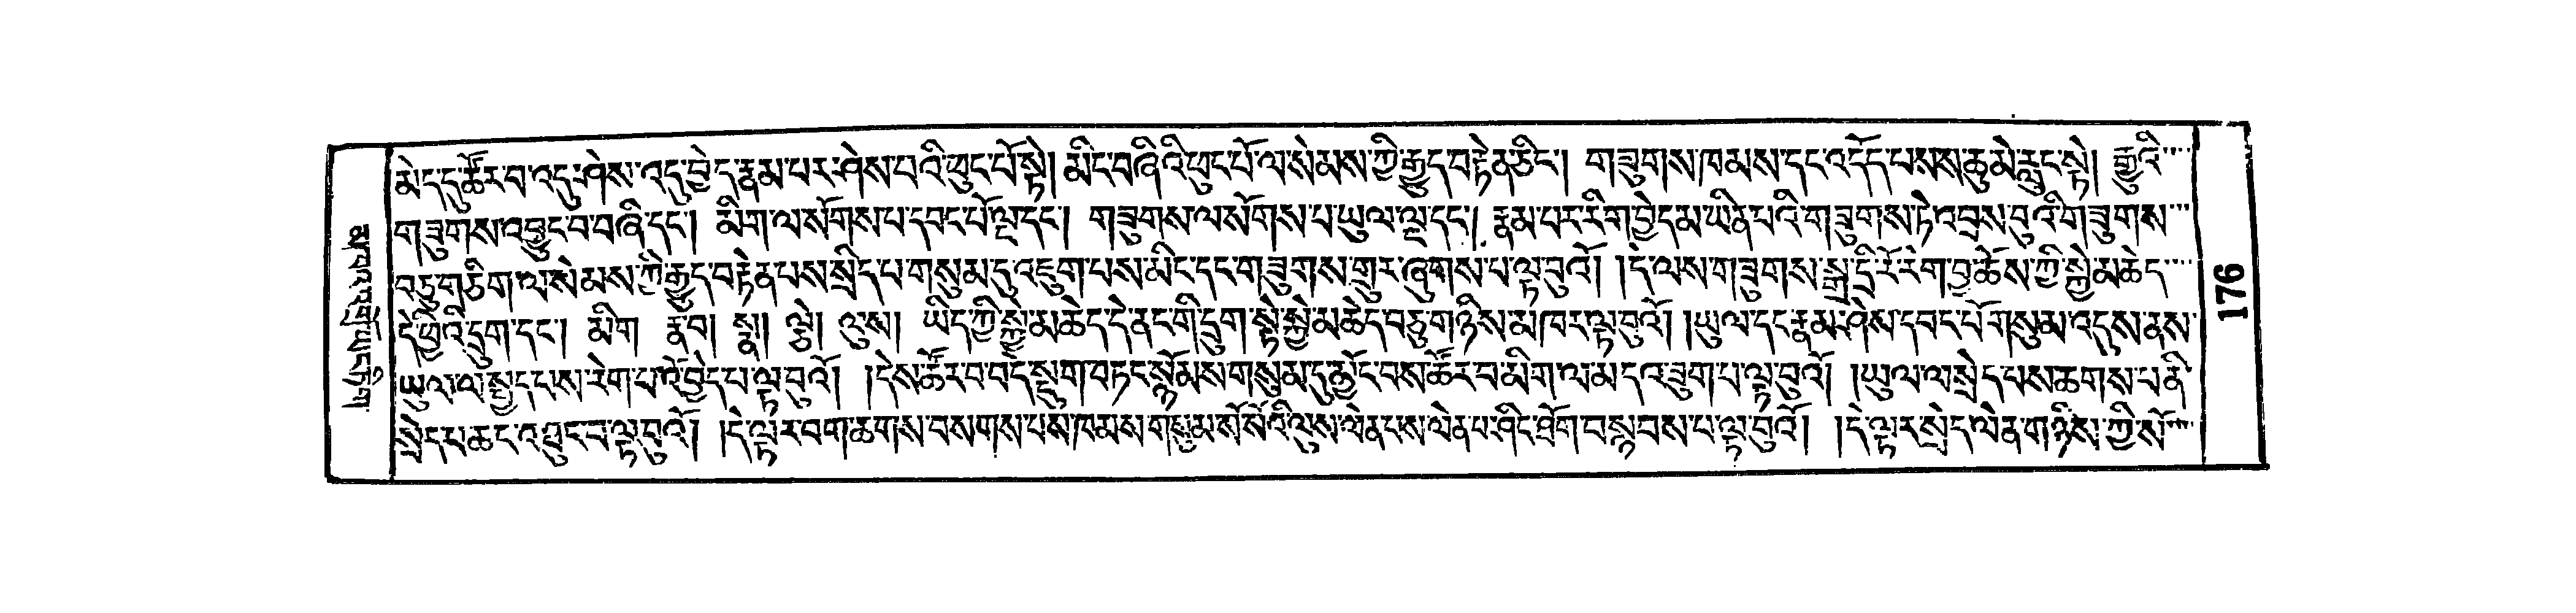 མེད་དུ་ཚོར་བ་འདུ་ཤེས་འདུ་བྱེད་རྣམ་པར་ཤེས་པའི་ཕུང་པོ་སྟེ། མིང་བཞིའི་ཕུང་པོ་ལ་སེམས་ཀྱི་རྒྱུད་བརྟེན་ཅིང་། གཟུགས་ཁམས་དང་འདོད་པས་ས་ཆུ་མེ་རླུང་སྟེ། རྒྱུའི་
གཟུགས་འབྱུང་བ་བཞི་དང་། མིག་ལ་སོགས་པ་དབང་པོ་ལྔ་དང་། གཟུགས་ལ་སོགས་པ་ཡུལ་ལྔ་དང་། རྣམ་པར་རིག་བྱེད་མ་ཡིན་པའི་གཟུགས་ཏེ་འབྲས་བུའི་གཟུགས་
བཅུ་གཅིག་ལ་སེམས་ཀྱི་རྒྱུད་བརྟེན་པས་སྲིད་པ་གསུམ་དུ་འཇུག་པས་མིང་དང་གཟུགས་གྲུར་ཞུགས་པ་ལྟ་བུའོ། །དེ་ལས་གཟུགས་སྒྲ་དྲི་རོ་རེག་བྱ་ཆོས་ཀྱི་སྐྱེ་མཆེད་
དེ་ཕྱིའི་དྲུག་དང་། མིག རྣ་བ། སྣ། ལྕེ། ལུས། ཡིད་ཀྱི་སྐྱེ་མཆེད་དེ་ནང་གི་དྲུག་སྟེ་སྐྱེ་མཆེད་བཅུ་གཉིས་མ་ཁང་ལྟ་བུའོ། །ཡུལ་དང་རྣམ་ཤེས་དབང་པོ་གསུམ་འདུས་ནས་
ཡུལ་ལ་སྤྱད་པས་རེག་པ་འོ་བྱེད་པ་ལྟ་བུའོ། །དེས་ཚོར་བ་བདེ་སྡུག་བཏང་སྙོམས་གསུམ་དུ་མྱོང་བས་ཚོར་བ་མིག་ལ་མདའ་ཟུག་པ་ལྟ་བུའོ། །ཡུལ་ལ་སྲེད་པས་ཆགས་པ་ནི་
སྲེད་པ་ཆང་འཐུང་བ་ལྟ་བུའོ། །དེ་ལྟར་བག་ཆགས་བསགས་པས་ཁམས་གསུམ་སོ་སོའི་ལུས་ལེན་པས་ལེན་པ་ཤིང་ཐོག་བསྙབས་པ་ལྟ་བུའོ། །དེ་ལྟར་སྲེད་ལེན་གཉིས་ཀྱི་ས་
176